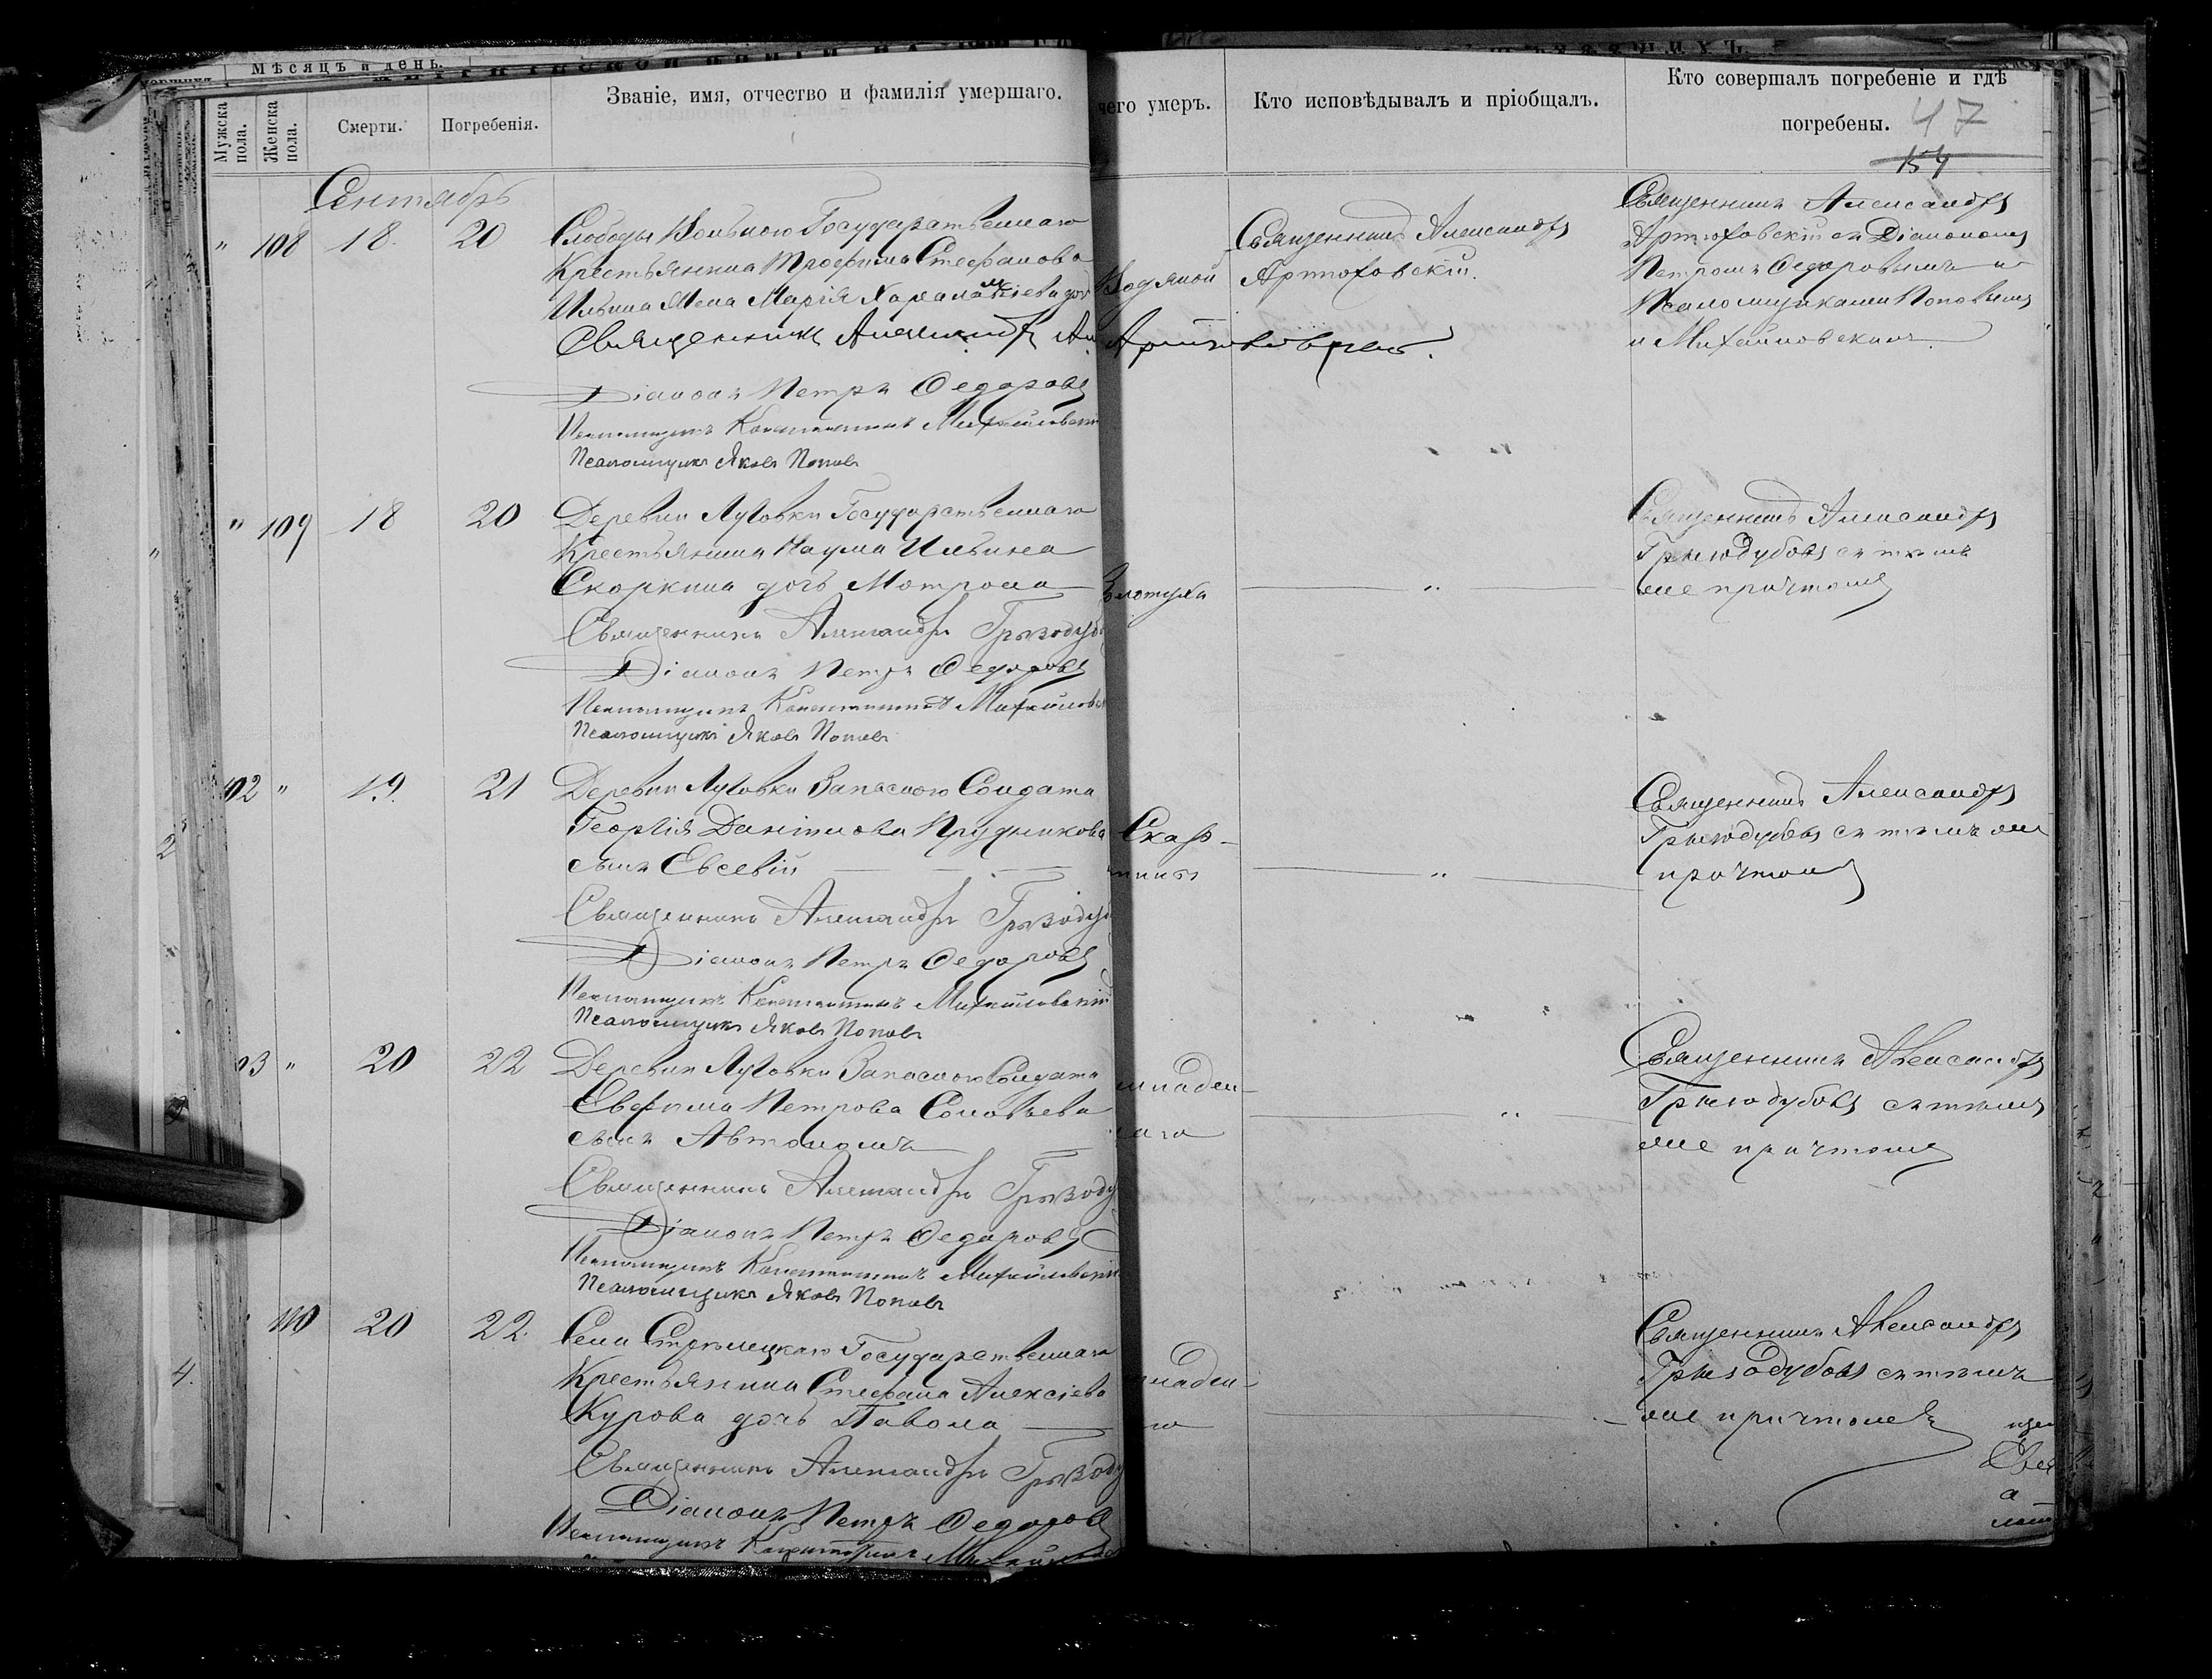 Мѣсяцъ и день.
Мужска пола.
Женска пола.
Смерти.
Погребенія.
Званіе, имя, отчество и фамилія умершаго.
чего умеръ.
Кто исповѣдывалъ и пріобщалъ.
Кто совершалъ погребеніе и гдѣ
погребены.
47
154
Сентябрь
" 108 18. 20
Слободы Вольной Государственнаго
Крестьянина Трофима Стефанова
Ильина жена Марія Харалампіева дочь
Водяной
Священникъ Александръ
Артюховскій.
Священникъ Александръ
Артюховскій съ Діакономъ
Петромъ Федоровымъ и
Псаломщиками Поповымъ
и Михайловскимъ.
Священникъ Александръ Артюховскій.
Діаконъ Петръ Федоровъ
Псаломщикъ Константинъ Михайловскій
Псаломщикъ Яковъ Поповъ
" 109 18 20
Деревни Луговки Государственнаго
Крестьянина Наума Ильина
Скоркина дочь Матрона
Золотуха
"
Священникъ Александръ
Грызодубовъ съ тѣмъ
же причтомъ
Священникъ Александръ Грызодуб
Діаконъ Петръ Федоровъ
Псаломщикъ Константинъ Михайловск
Псаломщикъ Яковъ Поповъ
102 " 19. 21
Деревни Луговки Запаснаго Солдата
Георгія Даніилова Прудникова
сынъ Евсевій
Скар-
тина
"
Священникъ Александръ
Грызодубовъ съ тѣмъ же
причтомъ
Священникъ Александръ Грызодуб
Діаконъ Петръ Федоровъ
Псаломщикъ Константинъ Михайловскій
Псаломщикъ Яковъ Поповъ
03 " 20 22
Деревни Луговки Запаснаго Солдата
Евфима Петрова Соловьева
сынъ Автономъ
младен-
"
Священникъ Александръ
Грызодубовъ съ тѣмъ
же причтомъ
Священникъ Александръ Грызоду
Діаконъ Петръ Федоровъ
Псаломщикъ Константинъ Михайловскій
Псаломщикъ Яковъ Поповъ
110 20 22.
Села Стрѣлецкаго Государственнаго
Крестьянина Стефана Алексіева
Курова дочь Павола
младен-
го
Священникъ Александръ
Грызодубовъ съ тѣмъ
же причтомъ
Священникъ Александръ Грызоду
Діаконъ Петръ Федоровъ
Псаломщикъ Константинъ Михайловскій